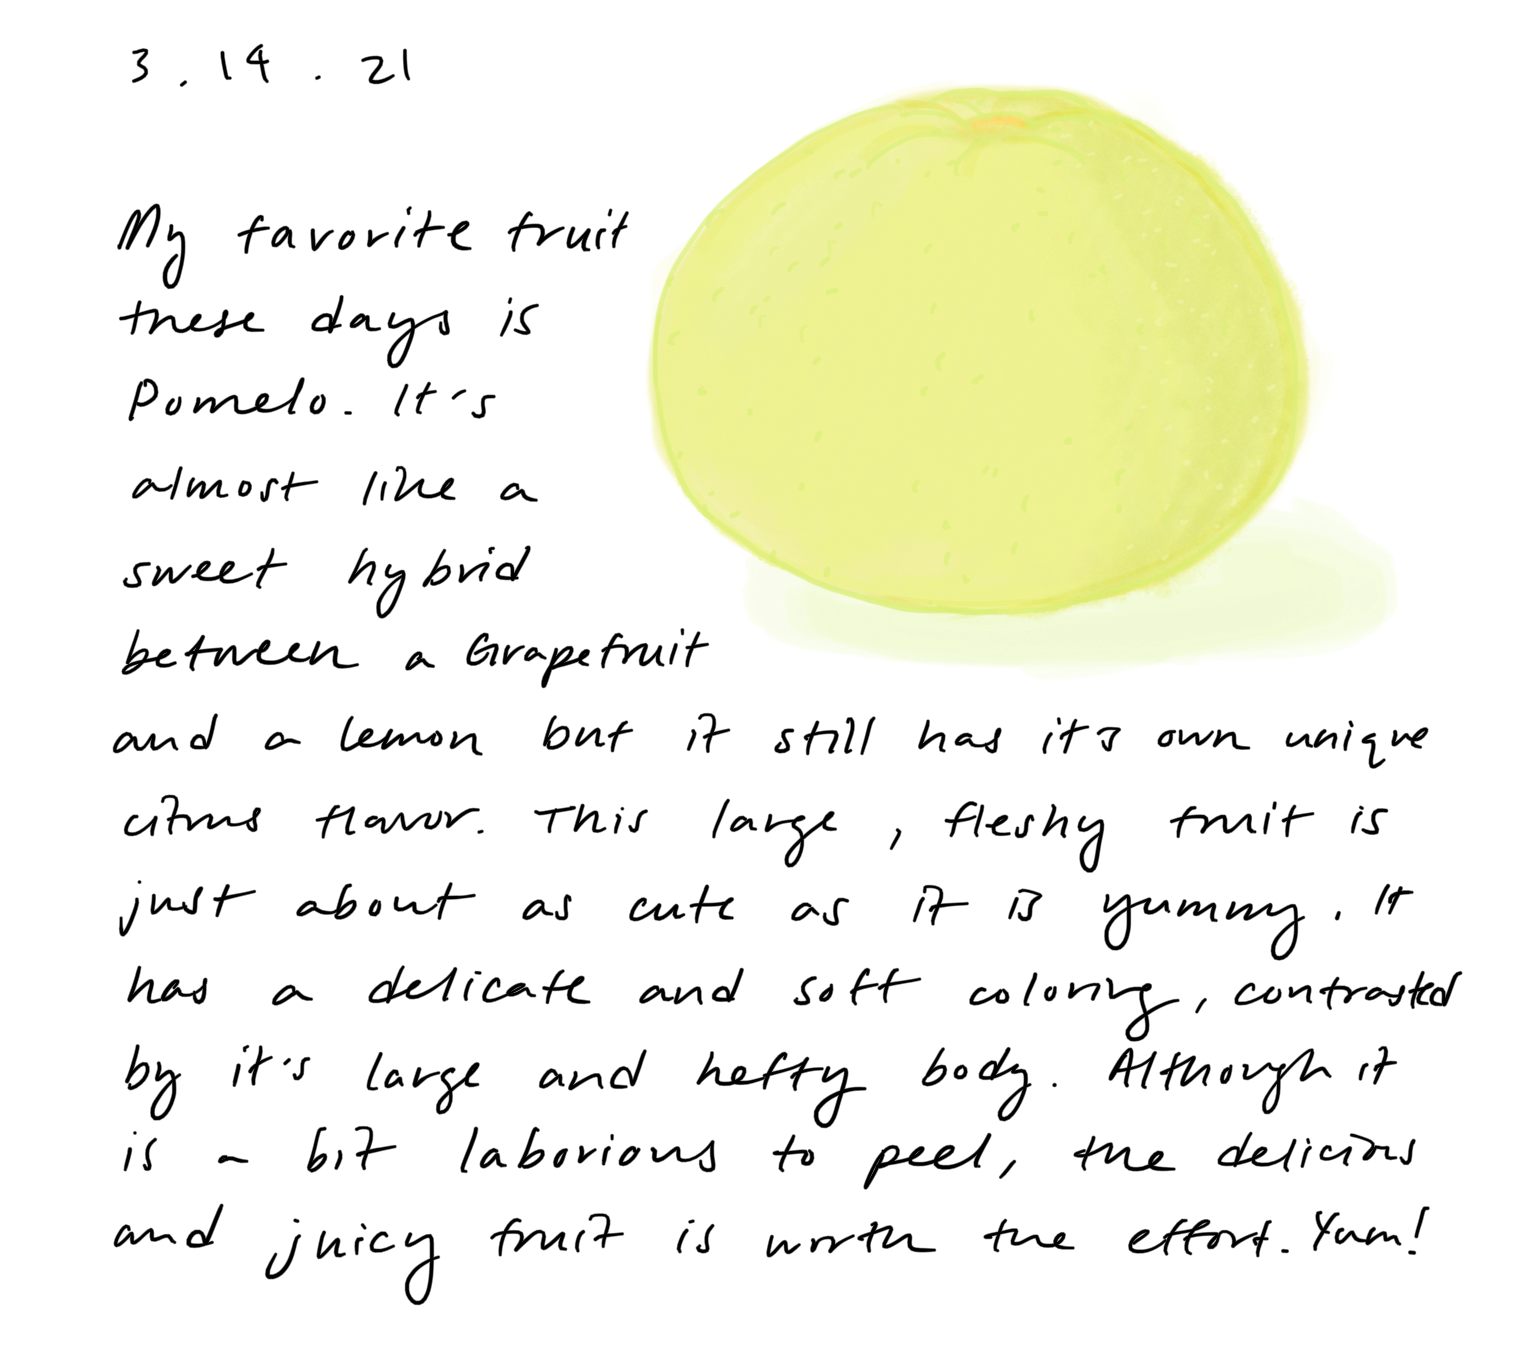 3.14.21
My favorite fruit
these days is
Pomelo. It's
almost like a
sweet hybrid
between a Grapefruit
and a lemon but it still has it's own unique
citrus flavor. This large, fleshy fruit is
just about as cute as it is yummy. It
has a delicate and soft coloring, contrasted
by it's large and hefty body. Although it
is a bit laborious to peel, the delicious
and juicy fruit is worth the effort. Yum!